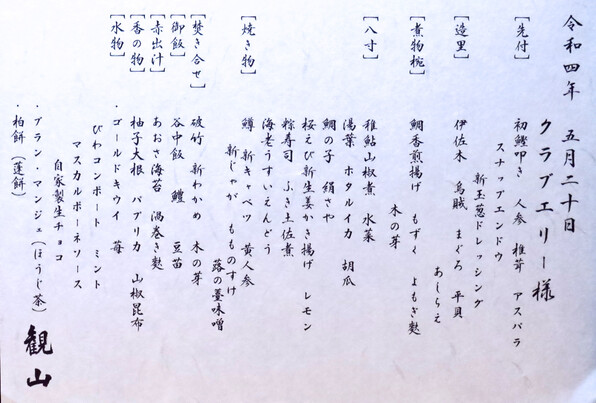 令和四年 五月二十日
クラブエリー様
[先付] 初鰹叩き 人参 椎茸 アスパラ
スナップエンドウ
新玉葱ドレッシング
[造里] 伊佐木 烏賊 まぐろ 平貝
あしらえ
[煮物椀] 鯛香煎揚げ もずく よもぎ麩
木の芽
[八寸] 稚鮎山椒煮 水菜
湯葉 ホタルイカ 胡瓜
鯛の子 絹さや
桜えび新生姜かき揚げ レモン
粽寿司 ふき土佐煮
海老うすいえんどう
[焼き物] 鱒 新キャベツ 黄人参
新じゃが もものすけ
蕗の薹味噌
[焚き合せ] 破竹 新わかめ 木の芽
[御飯] 谷中飯 鱧 豆苗
[赤出汁] あおさ海苔 渦巻き麩
[香の物] 柚子大根 パプリカ 山椒昆布
[水物] ・ゴールドキウイ 苺
びわコンポート ミント
マスカルポーネソース
自家製生チョコ
・ブラン・マンジェ(ほうじ茶)
・柏餅(蓬餅)
観山